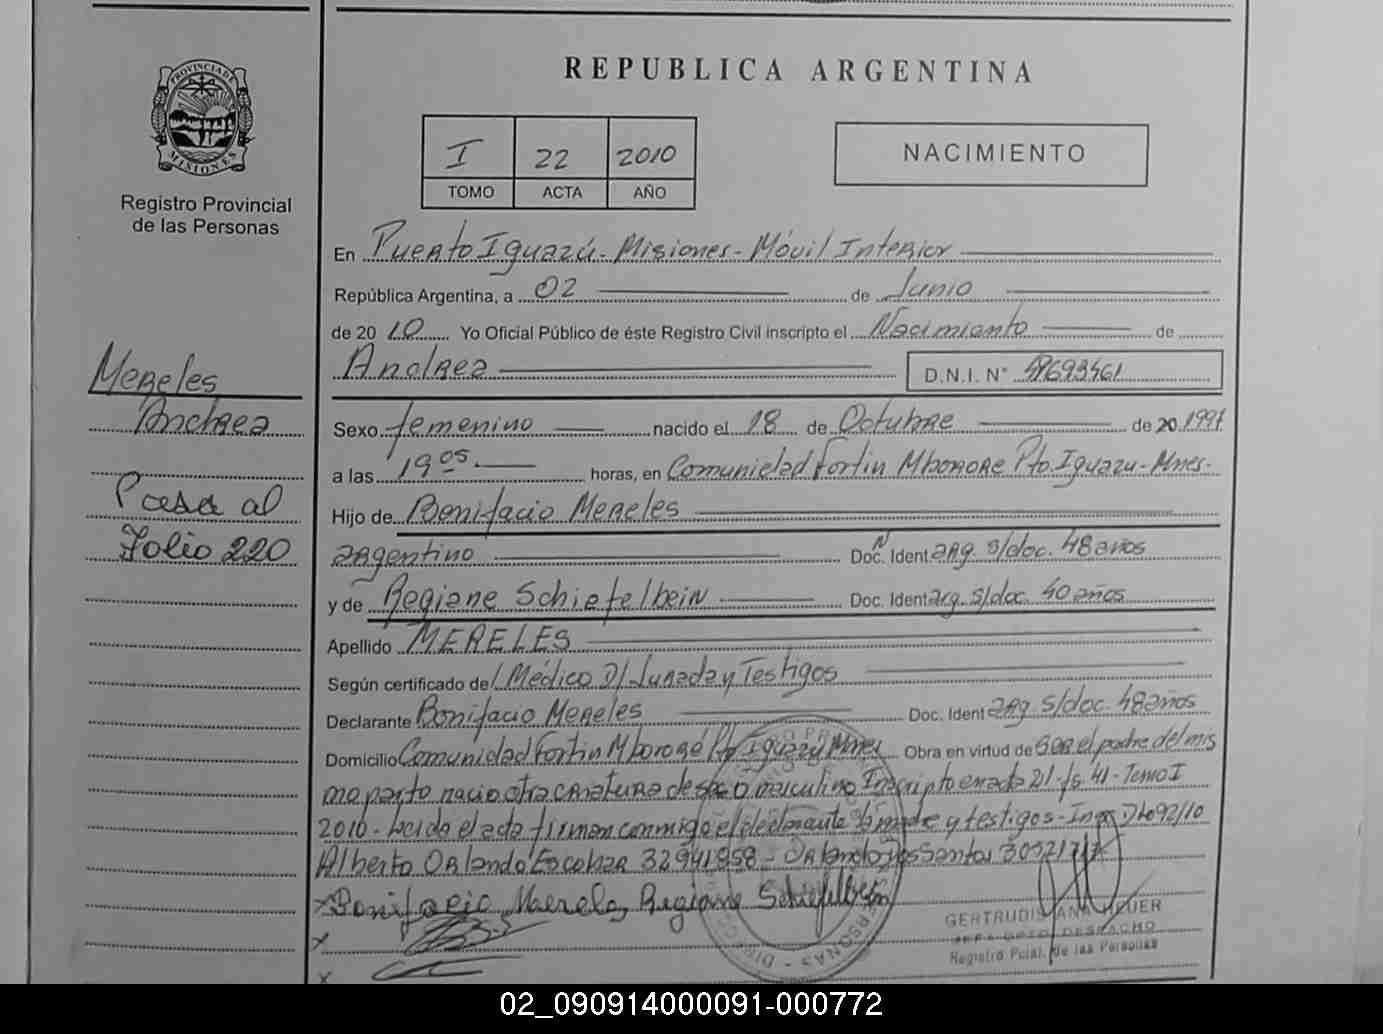 REPUBLICA ARGENTINA
PROVINCIA DE
MISIONES
Registro Provincial
de las Personas
I 22 2010
TOMO ACTA AÑO
NACIMIENTO
En Puerto Iguazú - Misiones - Móvil Interior
República Argentina, a 02 de Junio
de 2010 Yo Oficial Público de éste Registro Civil inscripto el Nacimiento de
Andrea
D.N.I. N°
Mereles
Andrea
Pasa al
Folio 220
Sexo femenino nacido el 18 de Octubre de 20 1997
a las 19 05 horas, en Comunidad Fortin Mborore Pto. Iguazu - Mnes -
Hijo de Bonifacio Mereles
argentino Doc. Ident arg. s/doc. 48 años
y de Regiane Schiefelbein Doc. Ident arg. s/doc. 40 años
Apellido MERELES
Según certificado de Médico D/Jurada y Testigos
Declarante Bonifacio Mereles Doc. Ident arg s/doc. 48 años
Domicilio Comunidad Fortin Mbororé Pto Iguazu Mnes Obra en virtud de ser el padre del mis
mo parto nacio otra criatura de sexo masculino Inscripto en acta 21 - fs 41 - Tomo I
2010 - Leida el acta firman conmigo el declarante la madre y testigos -
Alberto Orlando Escobar 32941858 - Orlando dos Santos
x Bonifacio Mereles Regiane Schiefelbein
x
x
GERTRUDIS ANA HEUER
JEFA DPTO DESPACHO
Registro Pcial. de las Personas
02_090914000091-000772